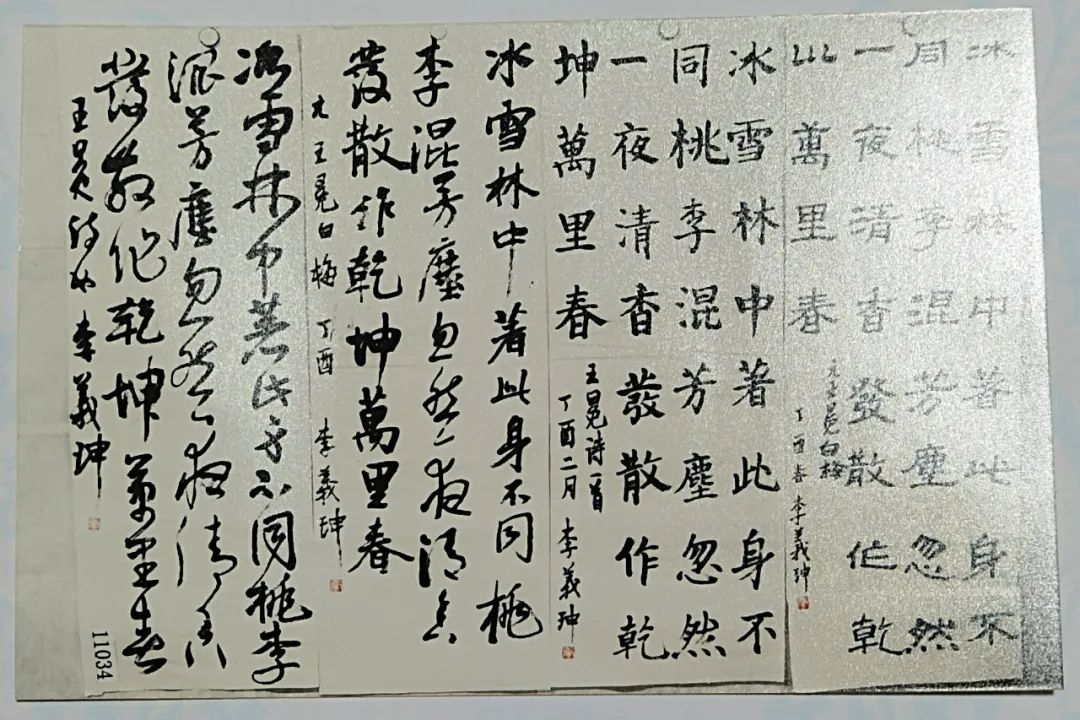 冰雪林中著此身不
同桃李混芳塵忽然
一夜清香發散作乾
巛萬里春
元王冕白梅
丁酉春 李義珅
冰雪林中著此身不
同桃李混芳塵忽然
一夜清香發散作乾
坤萬里春
王冕诗一首
丁酉二月 李義珅
冰雪林中著此身不同桃
李混芳塵忽然一夜清香
發散作乾坤萬里春
元王冕白梅 丁酉 李義珅
冰雪林中著此身不同桃李
混芳塵忽然一夜清香
發散作乾坤萬里春
王冕詩 李義珅
11034